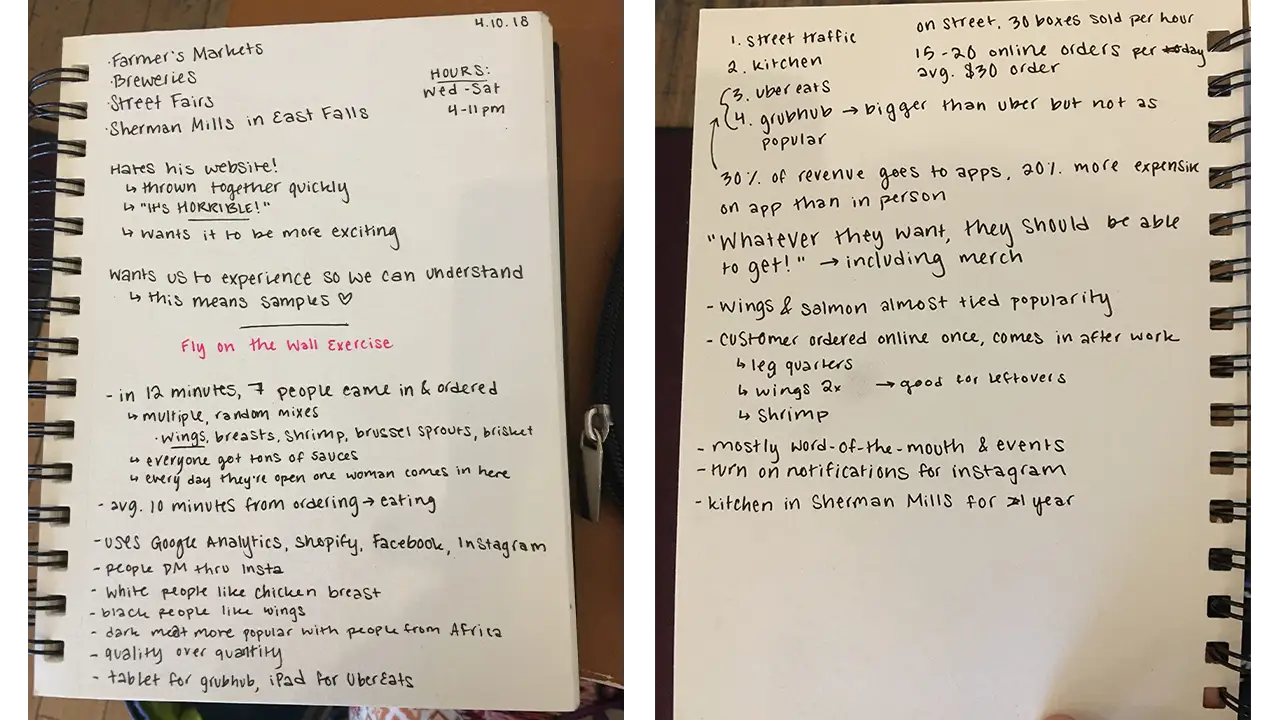 4.10.18
·Farmer's Markets
·Breweries
·Street Fairs
·Sherman Mills in East Falls
HOURS:
Wed-Sat
4-11pm
Hates his website!
↳ thrown together quickly
↳ "IT'S HORRIBLE!"
↳ wants it to be more exciting
wants us to experience so we can understand
↳ this means samples ♡
Fly on the Wall Exercise
- in 12 minutes, 7 people came in & ordered
↳ multiple, random mixes
· wings, breasts, shrimp, brussel sprouts, brisket
↳ everyone got tons of sauces
↳ every day they're open one woman comes in here
- avg. 10 minutes from ordering → eating
- uses Google Analytics, Shopify, Facebook, Instagram
- people DM thru Insta
- white people like chicken breast
- black people like wings
- dark meat more popular with people from Africa
- quality over quantity
- tablet for grubhub, iPad for UberEats
1. street traffic
2. kitchen
3. uber eats
4. grubhub → bigger than uber but not as
popular
on street, 30 boxes sold per hour
15-20 online orders per day
avg. $30 order
30% of revenue goes to apps, 20% more expensive
on app than in person
"Whatever they want, they should be able
to get!" → including merch
- wings & salmon almost tied popularity
- customer ordered online once, comes in after work
↳ leg quarters
↳ wings 2x → good for leftovers
↳ shrimp
- mostly word-of-the-mouth & events
- turn on notifications for instagram
- kitchen in Sherman Mills for 1 year